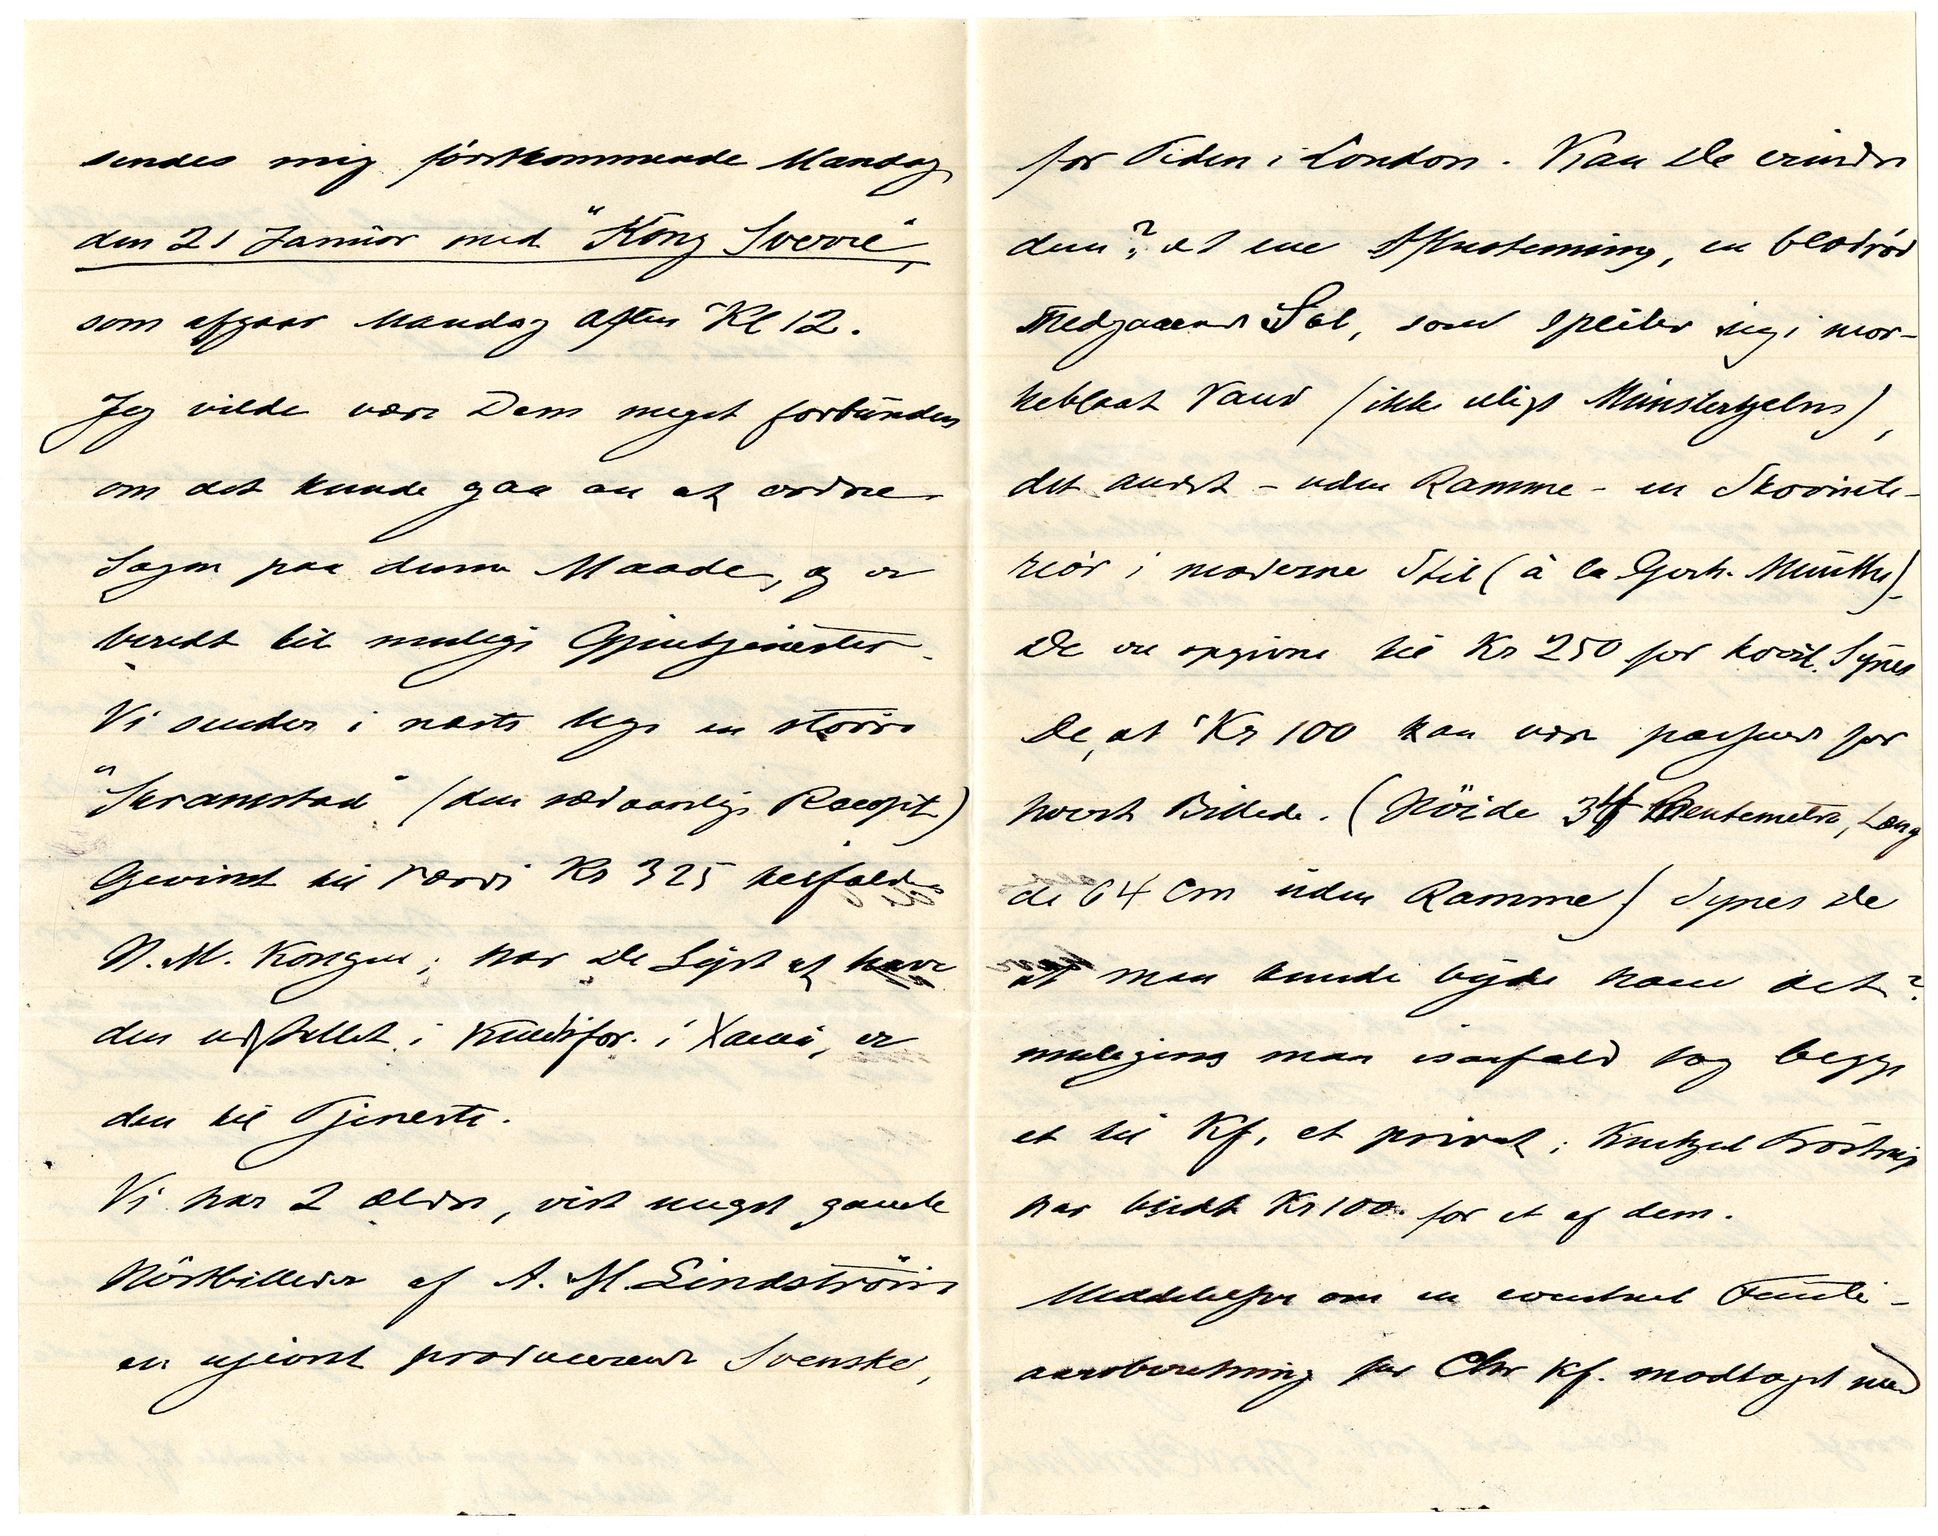 sendes mig förstkommende Mandag
den 21 Januar med "Kong Sverre",
som afgaar Mandag Aften Kl 12.
Jeg vilde være Dem meget forbunden
om det kunde gaa an at ordne
Sagen paa denne Maade, og er
beredt til mulige Gjentjenester.
Vi sender i næste Uge en större
"Skramstad" (den sædvanlige Recept)
Gevinst til Værdi Kr 325 tilfalden
H. M. Kongen; har De Lyst at have
den udstillet i Kunstfor. i Xania, er
den til Tjeneste.
Vi har 2 ældre, vist meget gamle
Höstbilleder af A. M. Lindström
en ujevnt producerende Svenske,
for Tiden i London. Kan De erindre
dem? det ene Aftnstemning, en blodröd
nedgaaende Sol, som speiler sig i mör-
keblaat Vand (ikke uligt Münsterhjelms),
det andet - uden Ramme - en Skovinte-
riör i moderne Stil (à la Gerh. Munthe).
De ere opgivne til Kr 250 for hvert. Synes
De, at Kr 100 kan være passende for
hvert Billede. (Höide 34 Centemetre, Læng
de 64 Cm uden Ramme) Synes De
at man kunde byde ham det?
muligens man isaafald tog begge
et til Kf, et privat; Knetzel Tröstrup
har budt Kr 100 for et af dem.
Meddelelse om en eventuel
aarsberetning for Chr Kf. modtaget med